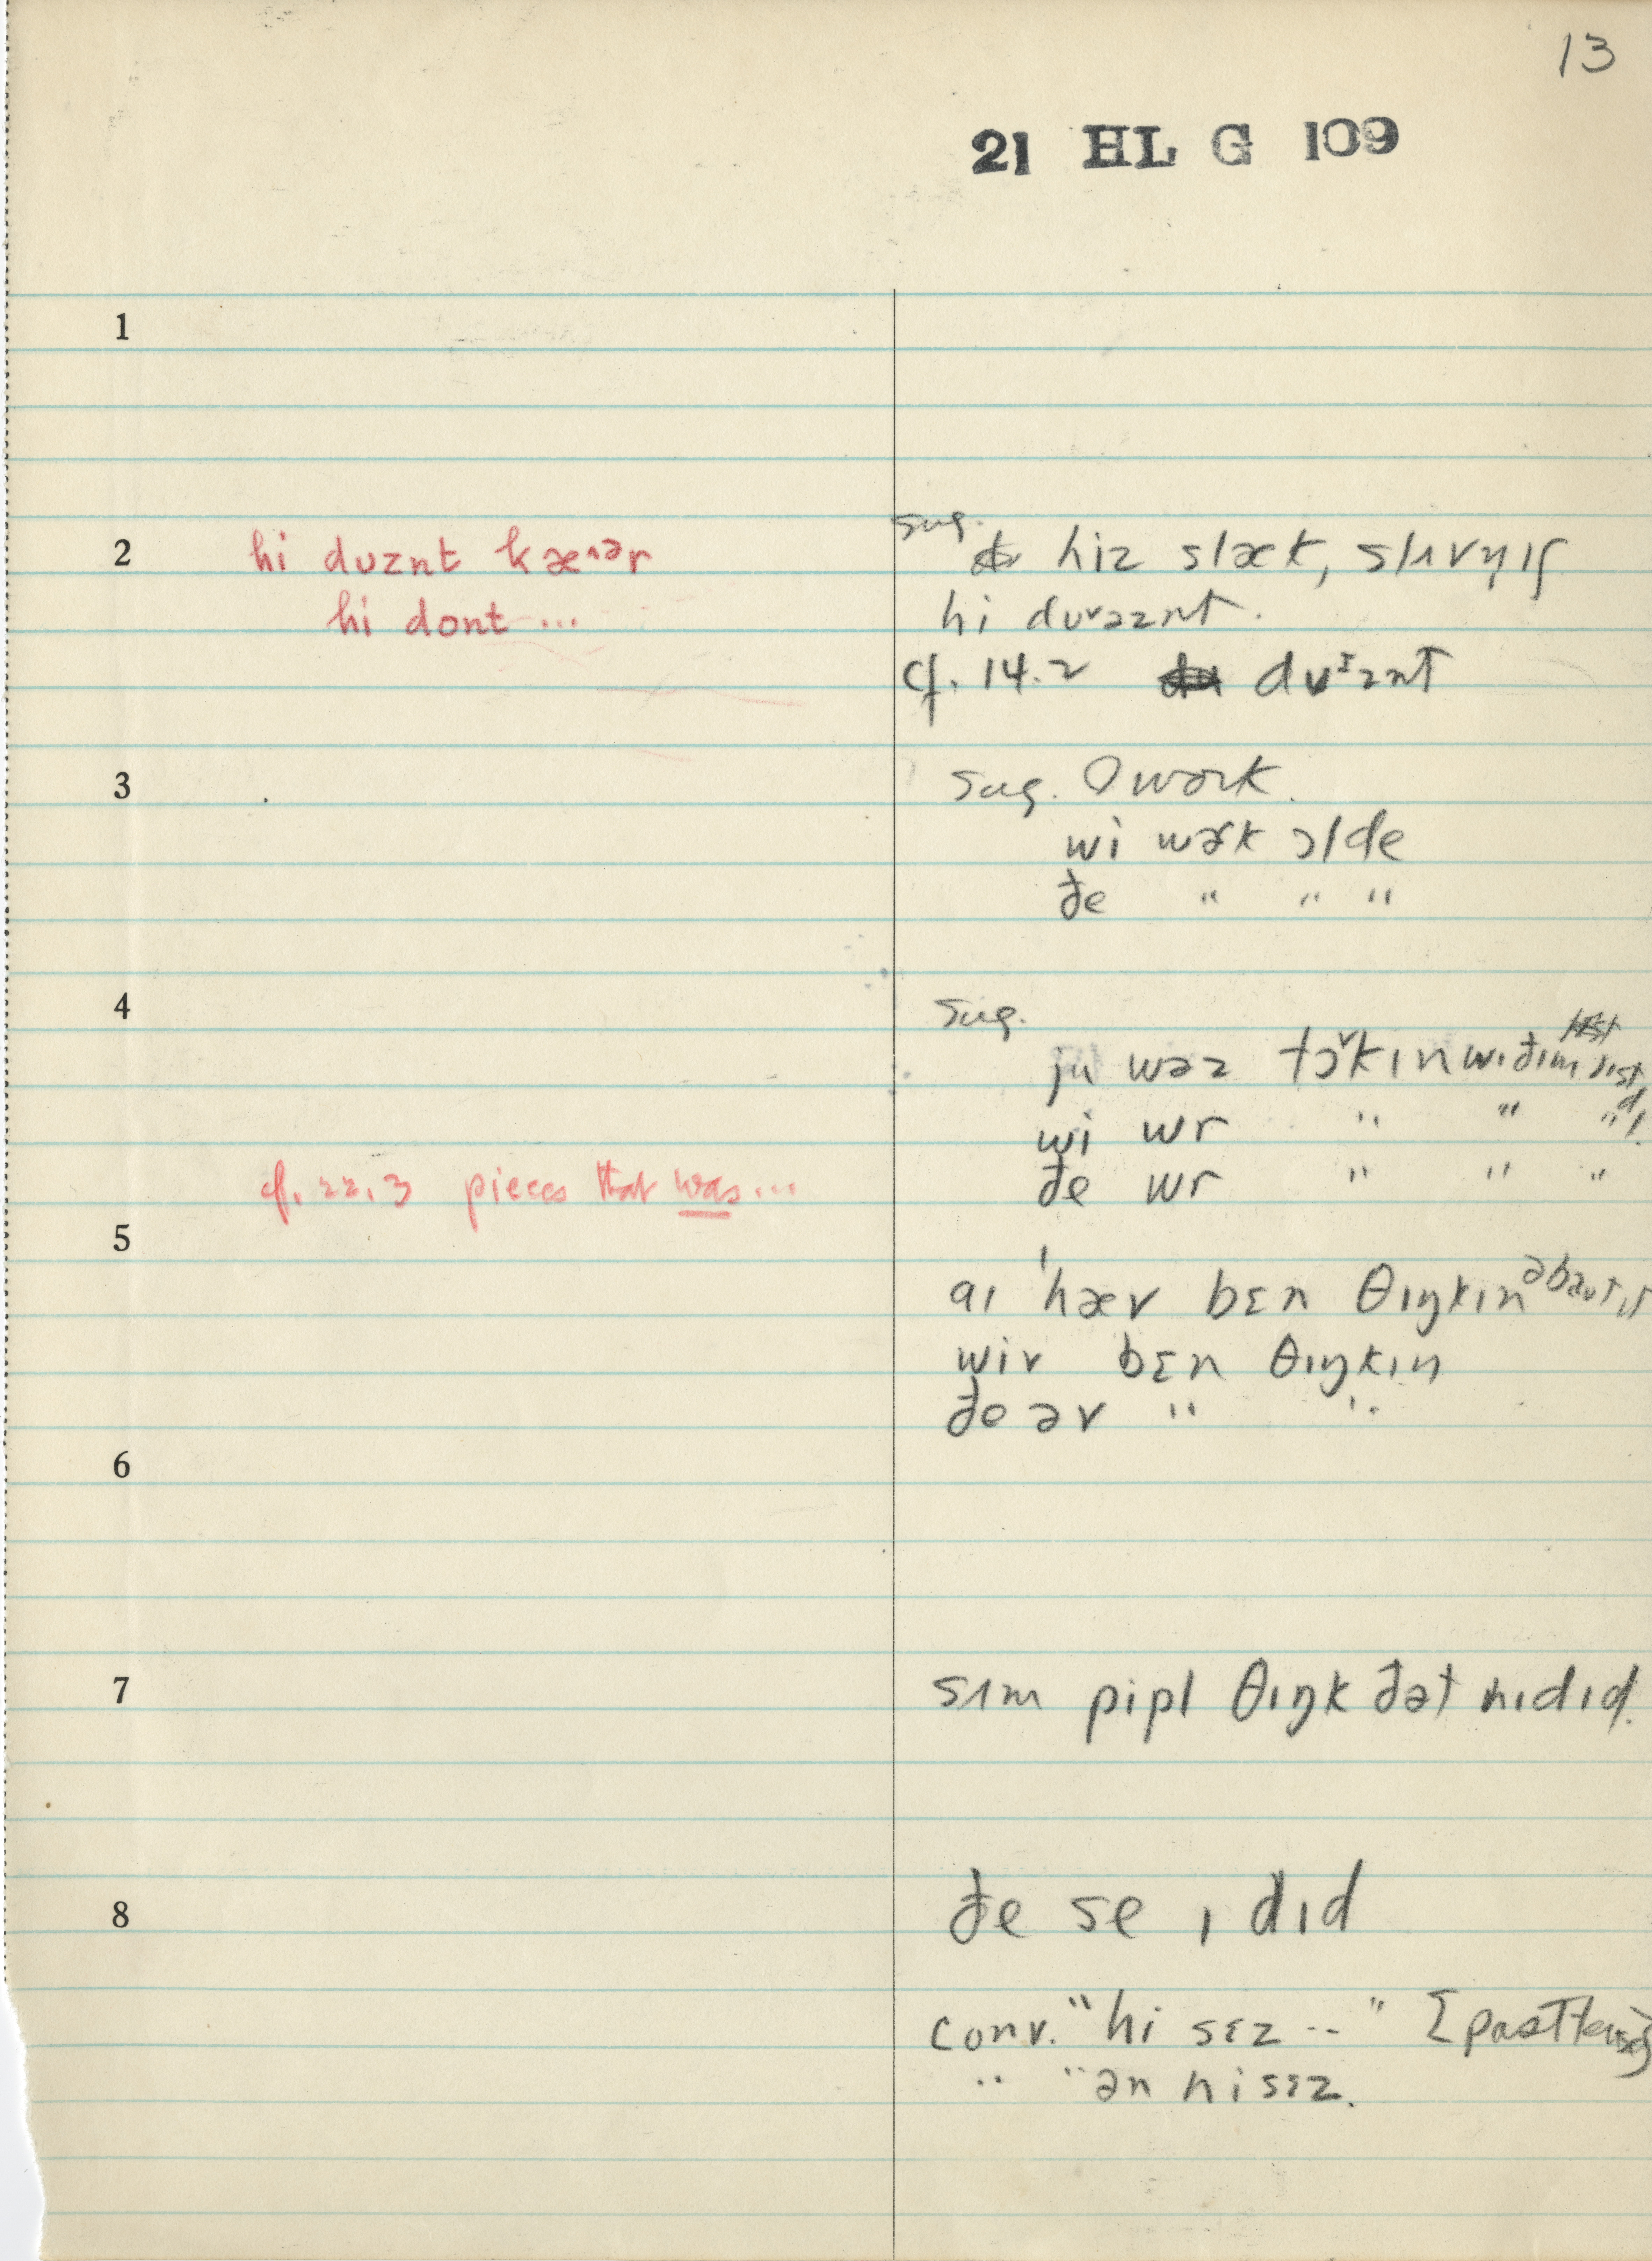 13
21 HL G 109
1
2 hi dʋznt kæ^ər
hi dont ...
sug. hiz slæk,
hi dʋ˅əznt.
cf. 14.2 dʋᶦznt
3
sug. O wərk.
wi wɚk ɔl de
đe " " "
4
sug.
ju wəz tɔ˅kɪn wɪđɪm
wi wr " " "
đe wr " " "
cf. 22.3 pieces that was ...
5
aɪ 'hæv bɛn θɪŋkɪn əbaʊt ɪt
wiv bɛn θɪŋkɪŋ
đe əv " "
6
7 sʌm pipl θɪŋk đət hɪ dɪd.
8 đe se ɪ dɪd
conv. "hi sɛz -- " [past tense]
" "ən hi sɛz.